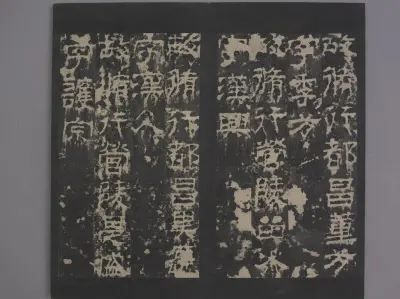 故脩行都昌董方
字季方
故脩行營陵
字漢興
故脩行都昌
字漢久
故脩行營陵是盛
字護宗